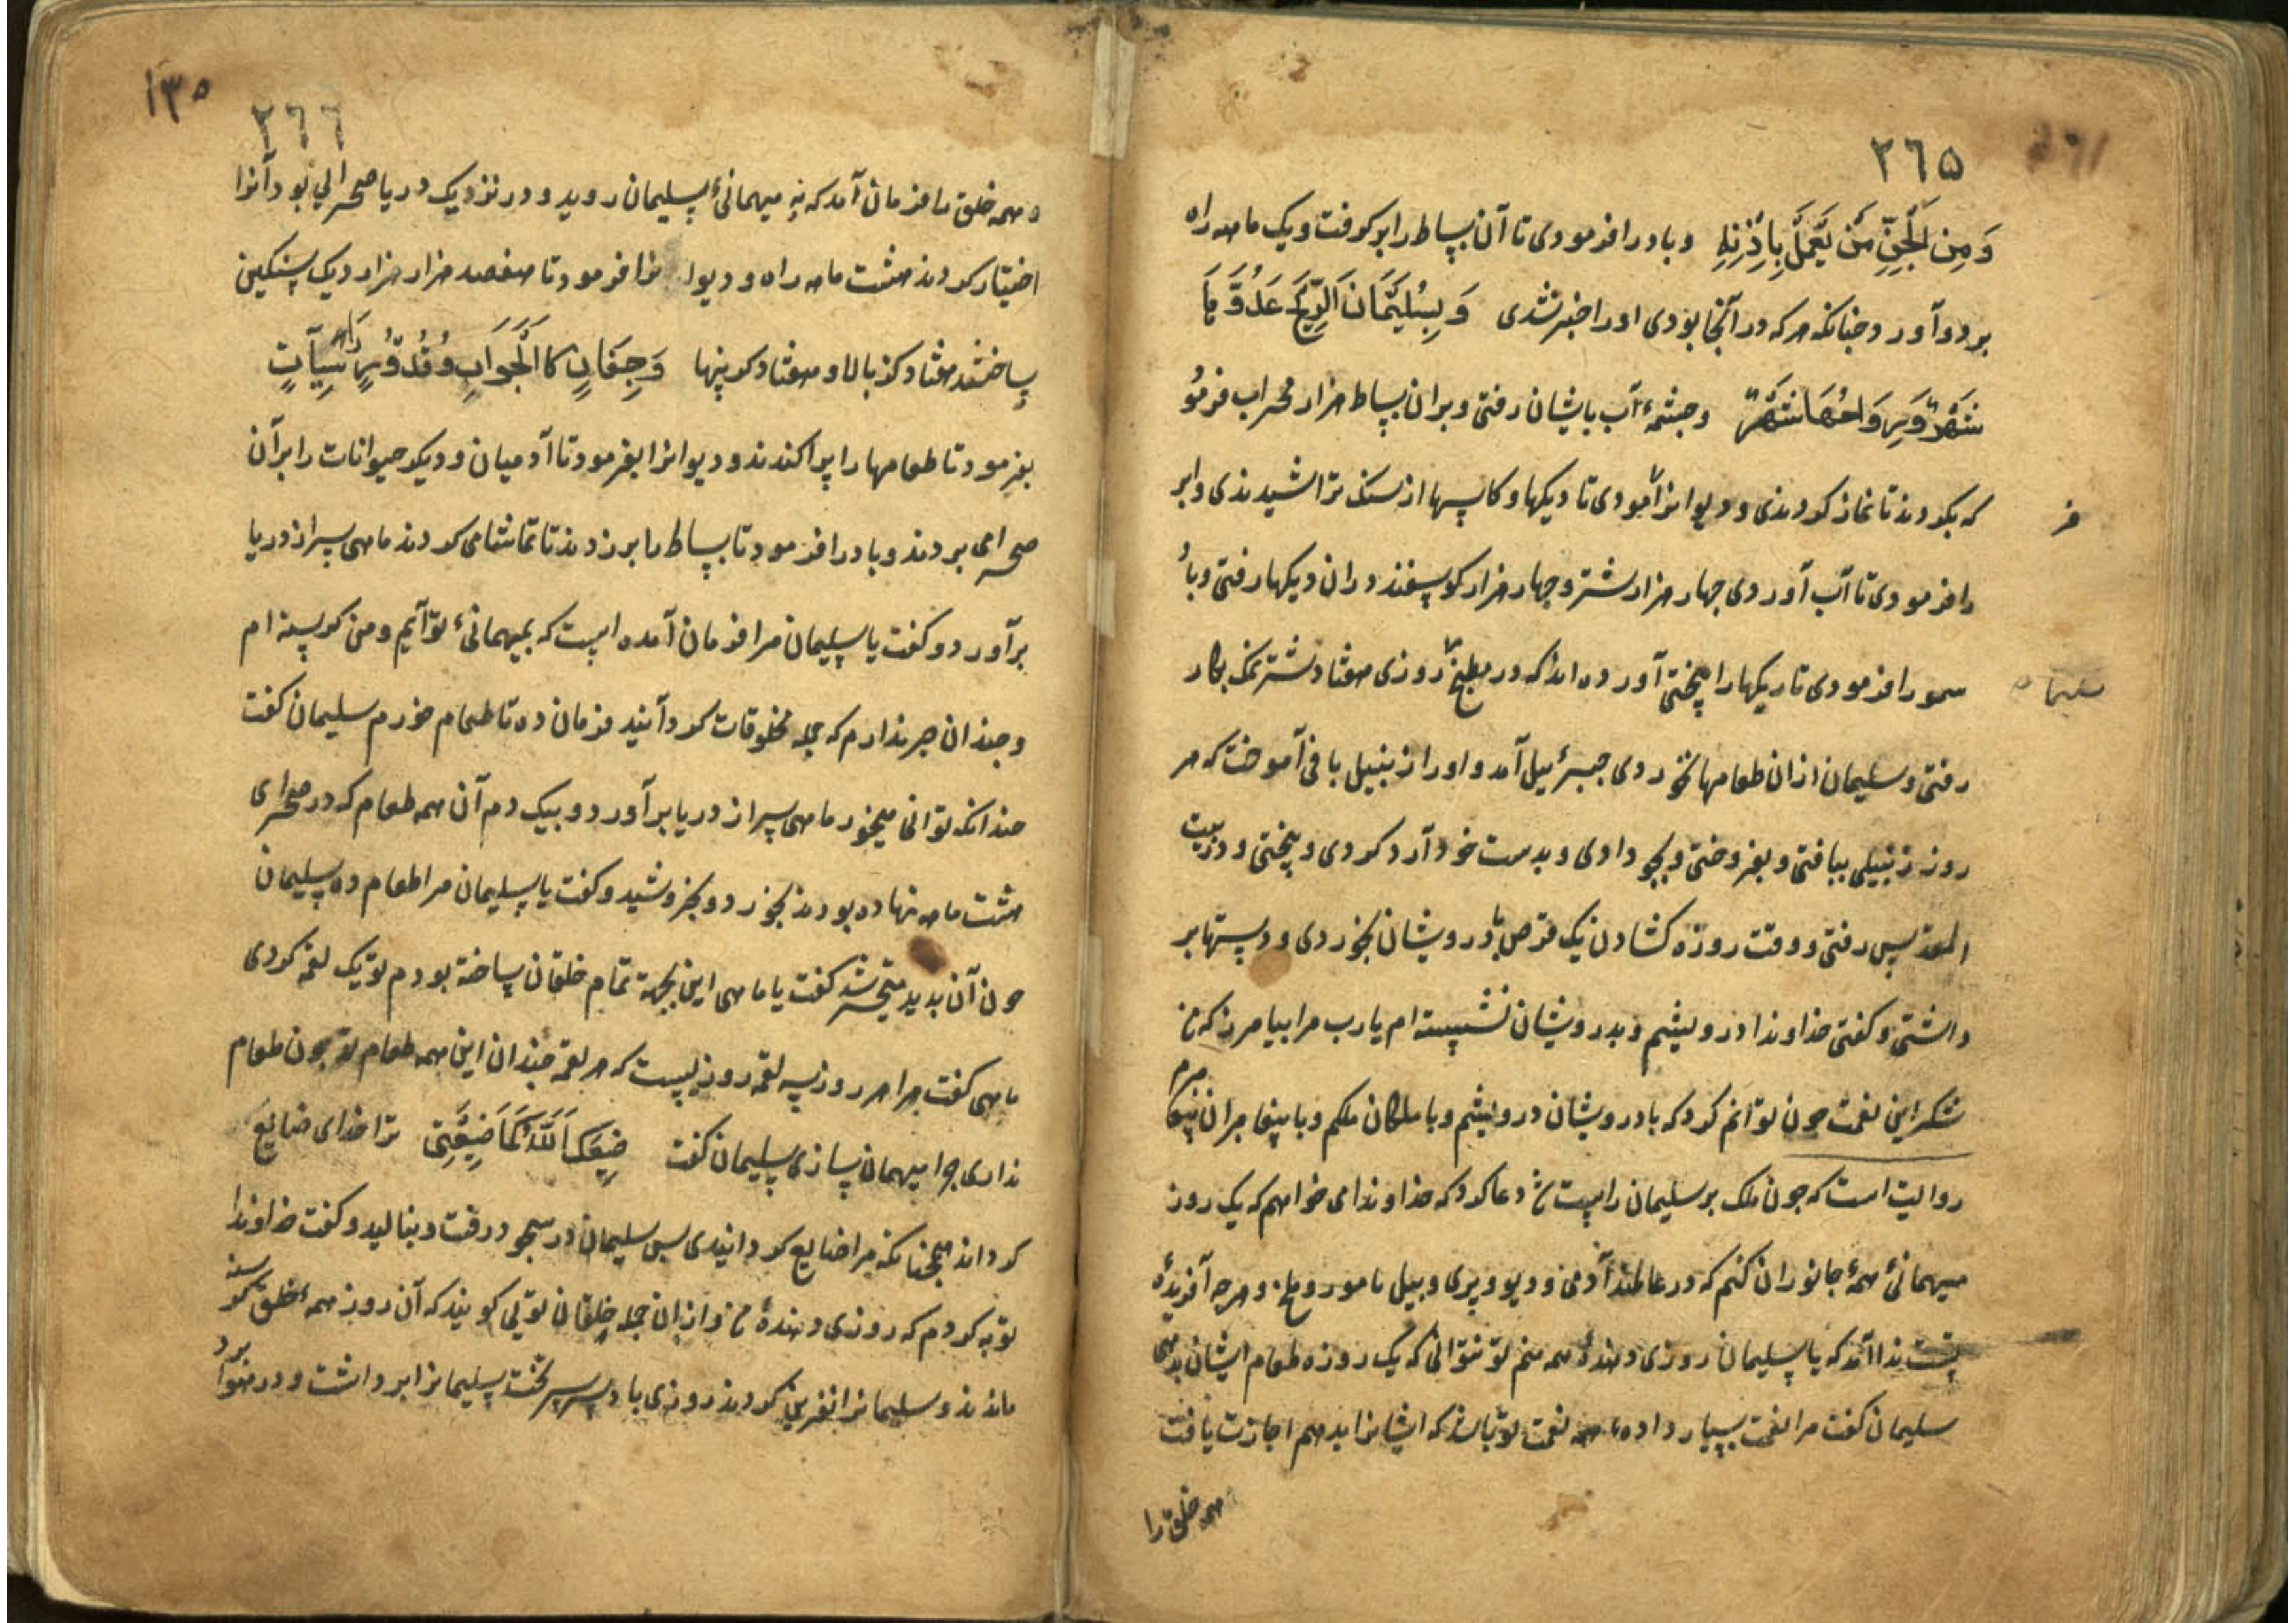 ٢٦٥
وَمِنَ الْجِنِّ مَن يَعْمَلُ بِاِذْنِهِ وباد را فرمودی تا آن بساط را بر کرفت و یک ماهه راه
بردو آورد چنانکه هر که در آنجا بودی او را خبر نشدی وَلِسُلَيْمَانَ الرِّيحَ غُدُوُّهَا
شَهْرٌ وَرَوَاحُهَا شَهْرٌ وچشمهٔ آب با یشان رفتی و بران بساط هزار محراب فرمو
که بکردند تا نماز کردندی و دیوانرا فرمودی تا دیکها و کاسها از سنک تراشیدندی و ابر
را فرمودی تا آب آوردی چهار هزار شتر و چهار هزار کوسفند دران دیکها رفتی و با
سمو را فرمودی تا دیکها را پختی آورده اند که در مطبخ روزی هفتاد شتر نمک بکار
سلیمان
رفتی و سلیمان ازان طعامها نخوردی جبرئیل آمد و او را زنبیل بافی آموخت که هر
روز زنبیلی ببافتی و بفروختی و بجو دادی و بدست خود آرد کردی و پختی و در بیت
المقدس رفتی و وقت روزه کشادن یک قرص با درویشان بخوردی و دستها بر
داشتی و کفتی خداوندا درویشم و بدرویشان نشسته ام یا رب مرا بیامرز که من
شکر این نعمت چون توانم کرد که با درویشان درویشم و با ملکان ملکم و با پیغامبران پیغا
مبرم
روایت است که چون ملک بر سلیمان راست شد دعا کرد که خداوندا می خواهم که یک روز
میهمانئ همهٔ جانوران کنم که در عالمند آدمی و دیو و پری و پیل تا مور و ملخ و هر چه آفریدهٔ
تست ندا آمد که یا سلیمان روزی دهندهٔ همه منم تو نتوانی که یک روزه طعام ایشان بدهی
سلیمان کفت مرا نعمت بسیار دادهٔ همه نعمت تو باشد که ایشانرا بدهم اجازت یافت
همه خلق را
١٣٥
٢٦٦
همه خلق را فرمان آمد که به میهمانئ سلیمان روید و در نزدیک دریا صحرائی بود آنرا
اختیار کردند هشت ماهه راه و دیوانرا فرمود تا هفصد هزار هزار دیک سنکین
ساختند هفتاد کز بالا و هفتاد کز پنها وَجِفَانٍ كَالْجَوَابِ وَقُدُورٍ رَاسِيَاتٍ
بفرمود تا طعامها را پراکندند و دیوانرا بفرمود تا آدمیان و دیکر حیوانات را بران
صحرا می بردند و باد را فرمود تا بساط را بر زدند تا تماشا می کردند ماهی سر از دریا
برآورد و کفت یا سلیمان مرا فرمان آمده است که بمیهمانئ تو آیم و من کرسنه ام
و چندان صبر ندارم که جمله مخلوقات کرد آیند فرمان ده تا طعام خورم سلیمان کفت
چندانکه توانی میخور ماهی سر از دریا برآورد و بیک دم آن همه طعام که در صحرای
هشت ماهه نهاده بودند بخورد و بخروشید و کفت یا سلیمان مرا طعام ده سلیمان
چون آن بدید متحیر شد کفت یا ماهی این بجهة تمام خلقان ساخته بودم تو یک لقمه کردی
ماهی کفت مرا هر روز سه لقمه روزیست که هر لقمه چندان این همه طعام تو چون طعام
نداری چرا میهمان سازی سلیمان کفت ضَيَّعَكَ اللَّهُ كَمَا ضَيَّعْتَنِي ترا خدای ضایع
کرداند همچنانکه مرا ضایع کردانیدی پس سلیمان در سجود رفت و بنالید و کفت خداوندا
توبه کردم که روزی دهندهٔ من و ازان جمله خلقان توئی کویند که آن روز همهٔ خلق کرسنه
ماندند و سلیمانرا نفرین کردند روزی باد سریر تخت سلیمانرا برداشت و در هوا برد